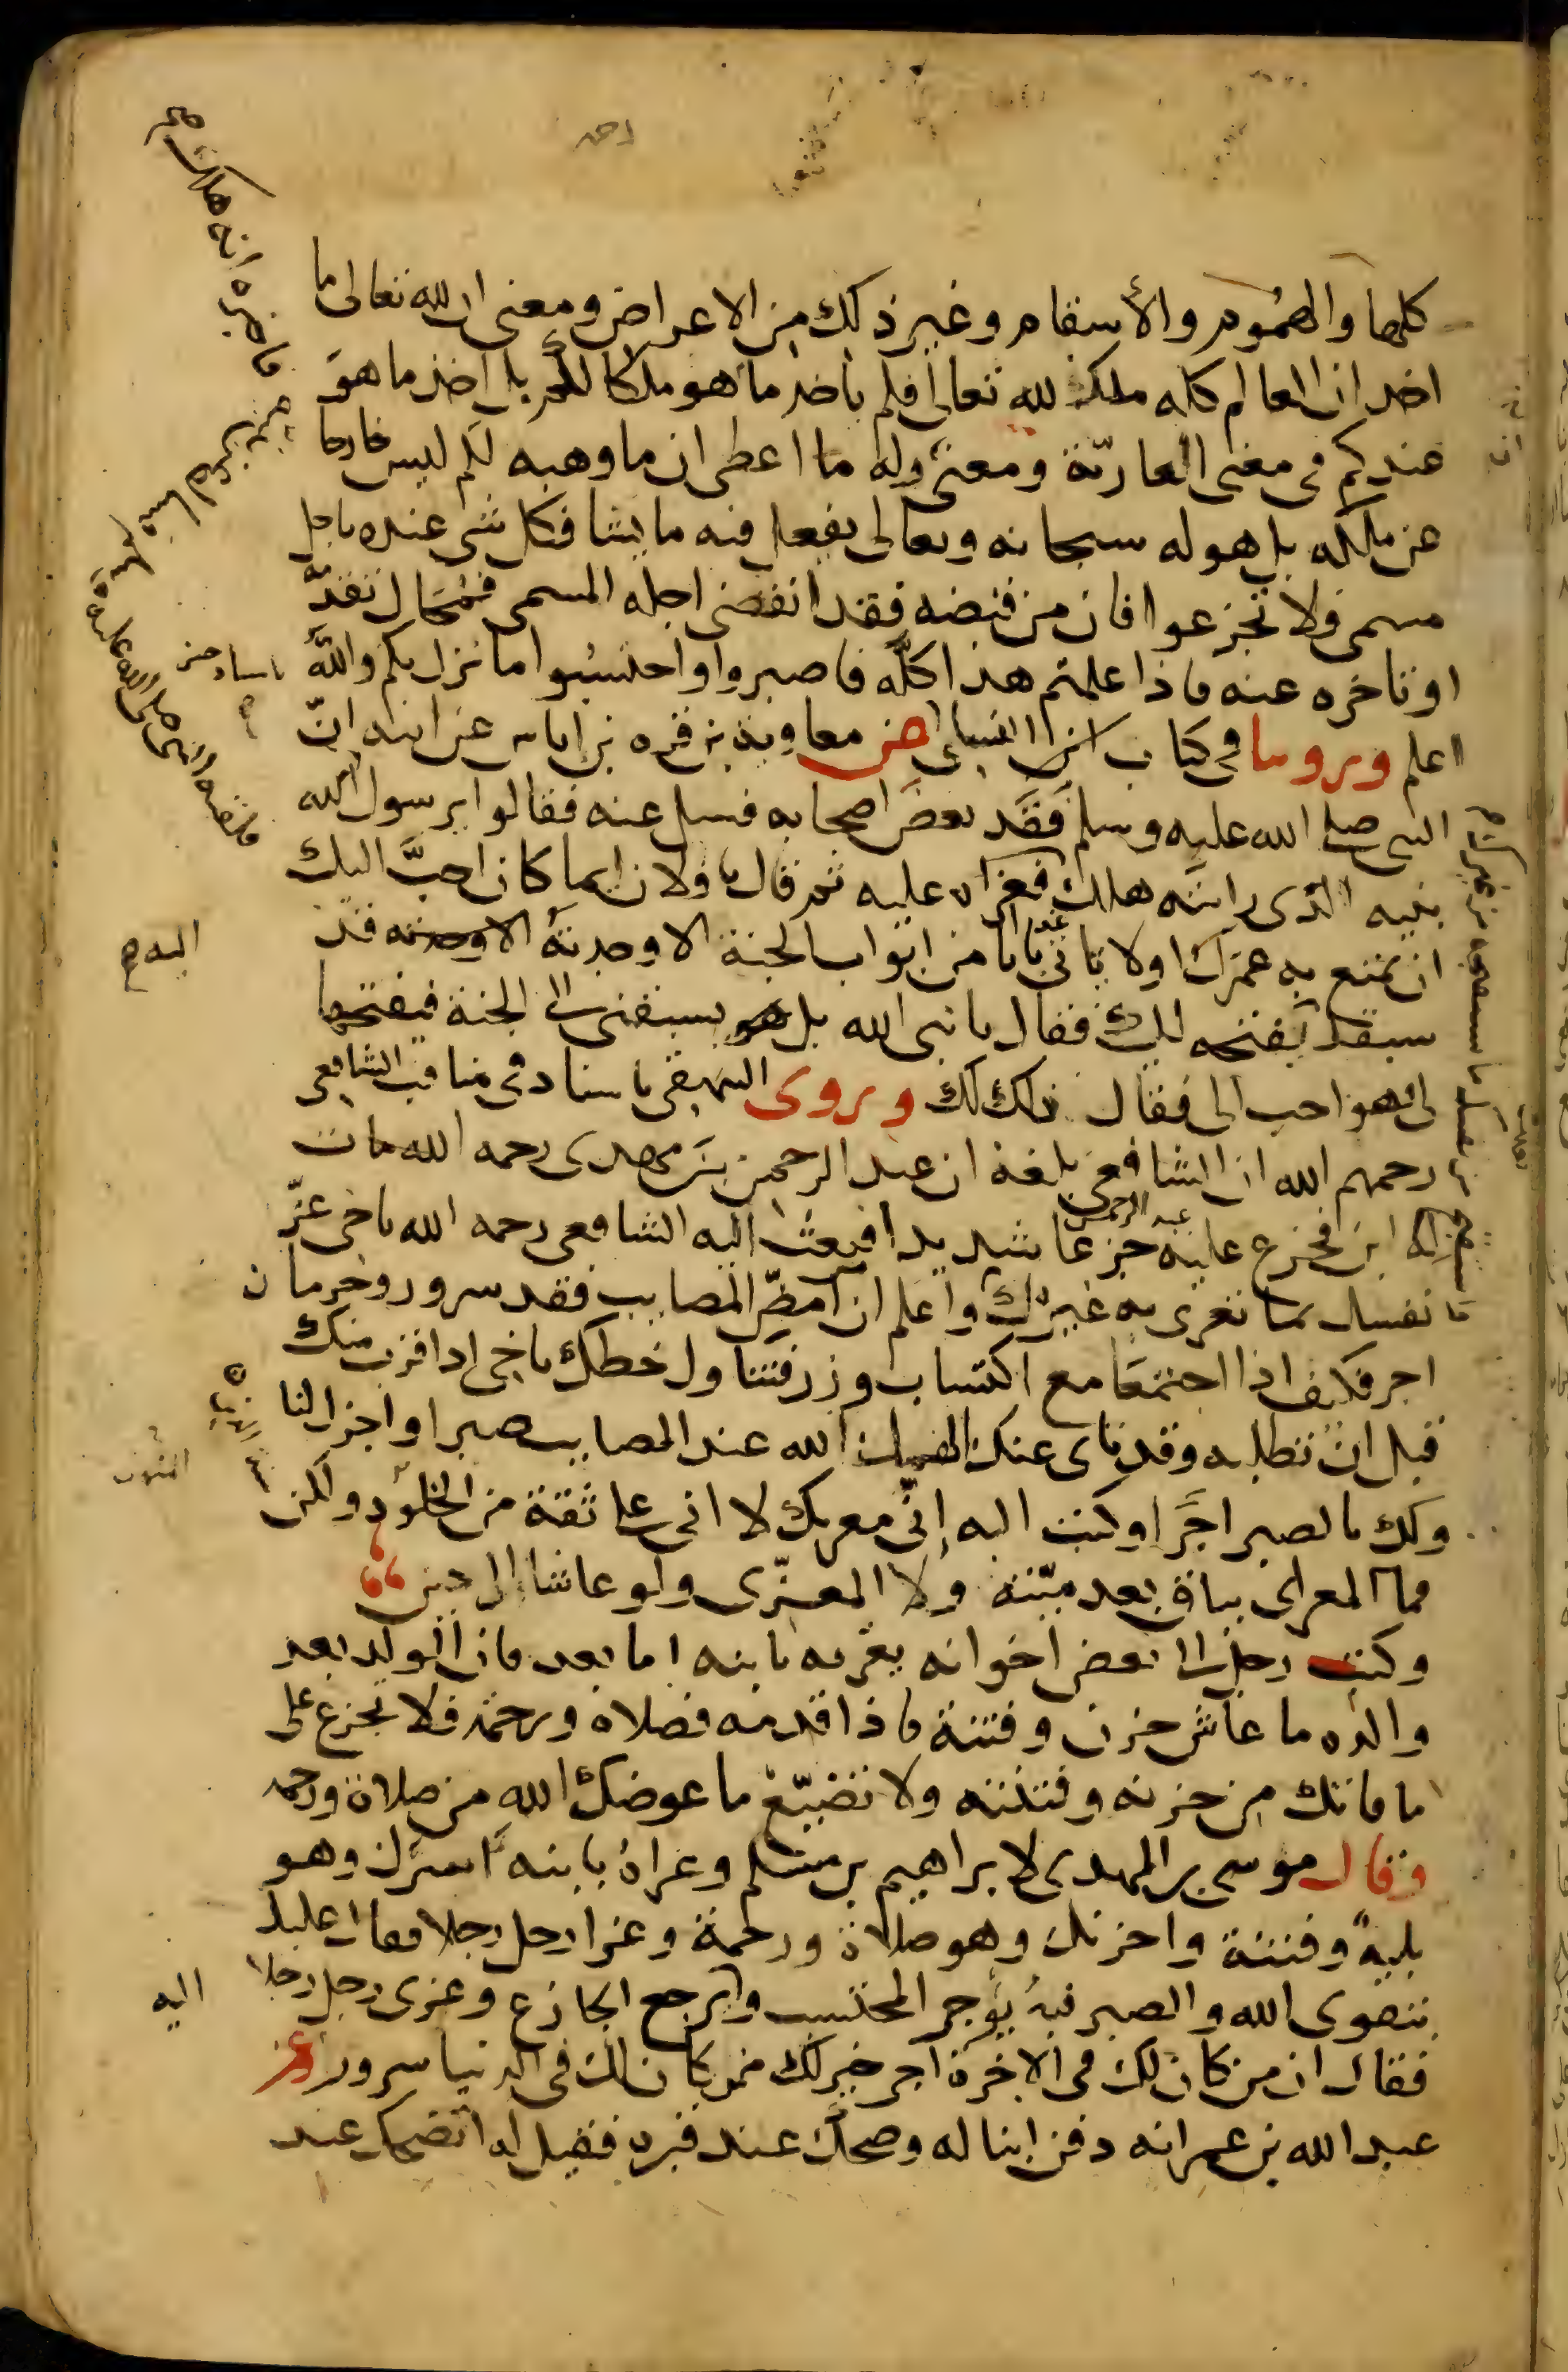 كلها والهموم والأسقام وغير ذلك من الاعراض ومعنى ان لله تعالى ما
اخذ ان العالم كله ملك لله تعالى فلم ياخذ ما هو ملكا لكم بل اخذ ما هو
عندكم فى معنى العارية ومعنى وله ما اعطى ان ما وهبه لكم ليس خارجا
عن ملكه بل هو له سبحانه وتعالى يفعل فيه ما يشا فكل شى عنده باجل
مسمى فلا تجزعوا فان من قبضه فقد انقضى اجله المسمى فمحال تقدمه
او تاخره عنه فاذا علمتم هذا كله فاصبروا واحتسبوا ما نزل بكم والله
اعلم وروينا فى كتاب النسائى عن معاوية بن قره بن اياس عن ابيه ان
النبى صلى الله عليه وسلم فقد بعض اصحابه فسل عنه فقالوا يرسول الله
بنيه الذى رايته هلك فعزاه عليه ثم قال يا فلان ايما كان احب اليك
ان تمتع به عمرك اولا تاتى غدا بابا من ابواب الجنة الا وجدته قد
سبقك يفتحه لك فقال يا نبى الله بل هو يسبقنى الى الجنة فيفتحها
لى فهو احب الى فقال ذلك لك وروى البيهقى باسناده فى مناقب الشافعى
رحمهم الله ان الشافعى بلغه ان عبد الرحمن بن مهدى رحمه الله مات
له ابن فجزع عليه عبد الرحمن جزعا شديدا فبعث اليه الشافعى رحمه الله ياخى عز
نفسك بما تعزى به غيرك واعلم ان امض المصايب فقد سرور وحرمان
اجر فكيف اذا اجتمعا مع اكتساب وزر فتناول حظك ياخى اذا قرب منك
قبل ان تطلبه وقد ناى عنك الهمك الله عند المصايب صبرا واجزل لنا
ولك بالصبر اجرا وكتب اليه انى معزيك لا انى على ثقة من الخلود ولكن
فما المعزى بباق بعد ميته ولا المعزى ولو عاشا الى حين
وكتب رجل الى بعض اخوانه يعزيه بابنه اما بعد فان الولد بعد
والده ما عاش حزن وفتنة فاذا قدمه فصلاة ورحمة فلا تجزع على
ما فاتك من حزنه وفتنته ولا تضيع ما عوضك الله من صلاة ورحمه
وقال موسى بن المهدى لابراهيم بن مسلم وعزاه بابنه اسرك وهو
بلية وفتنة واحزنك وهو صلاة ورحمة وعزا رجل رجلا فقال عليك
بتقوى الله والصبر فبه يؤجر المحتسب واليه يرجع الجازع وعزى رجل رجلا
فقال ان من كان لك فى الاخرة اجر خير لك ممن كان لك فى الدنيا سرور وعن
عبد الله بن عمر انه دفن ابنا له وضحك عند قبره فقيل له اتضحك عند